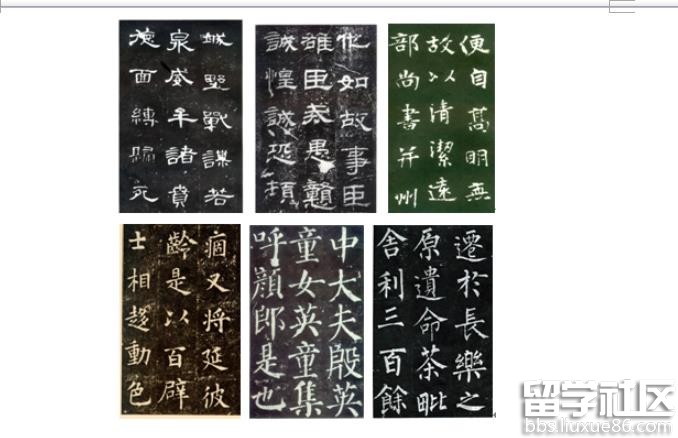 城壄戰謀若
泉威牟諸賁
德面縛歸死
化如故事臣
雄臣戒愚戇
誠惶誠恐頓
便自髙明無
故以清潔遠
部尚書并州
痼又將延彼
齡是以百辟
士相趍動色
中大夫殷英
童女英童集
呼顏郎是也
遷於長樂之
原遺命茶毗
舍利三百餘
留学社区
bbs.liuxue86.com